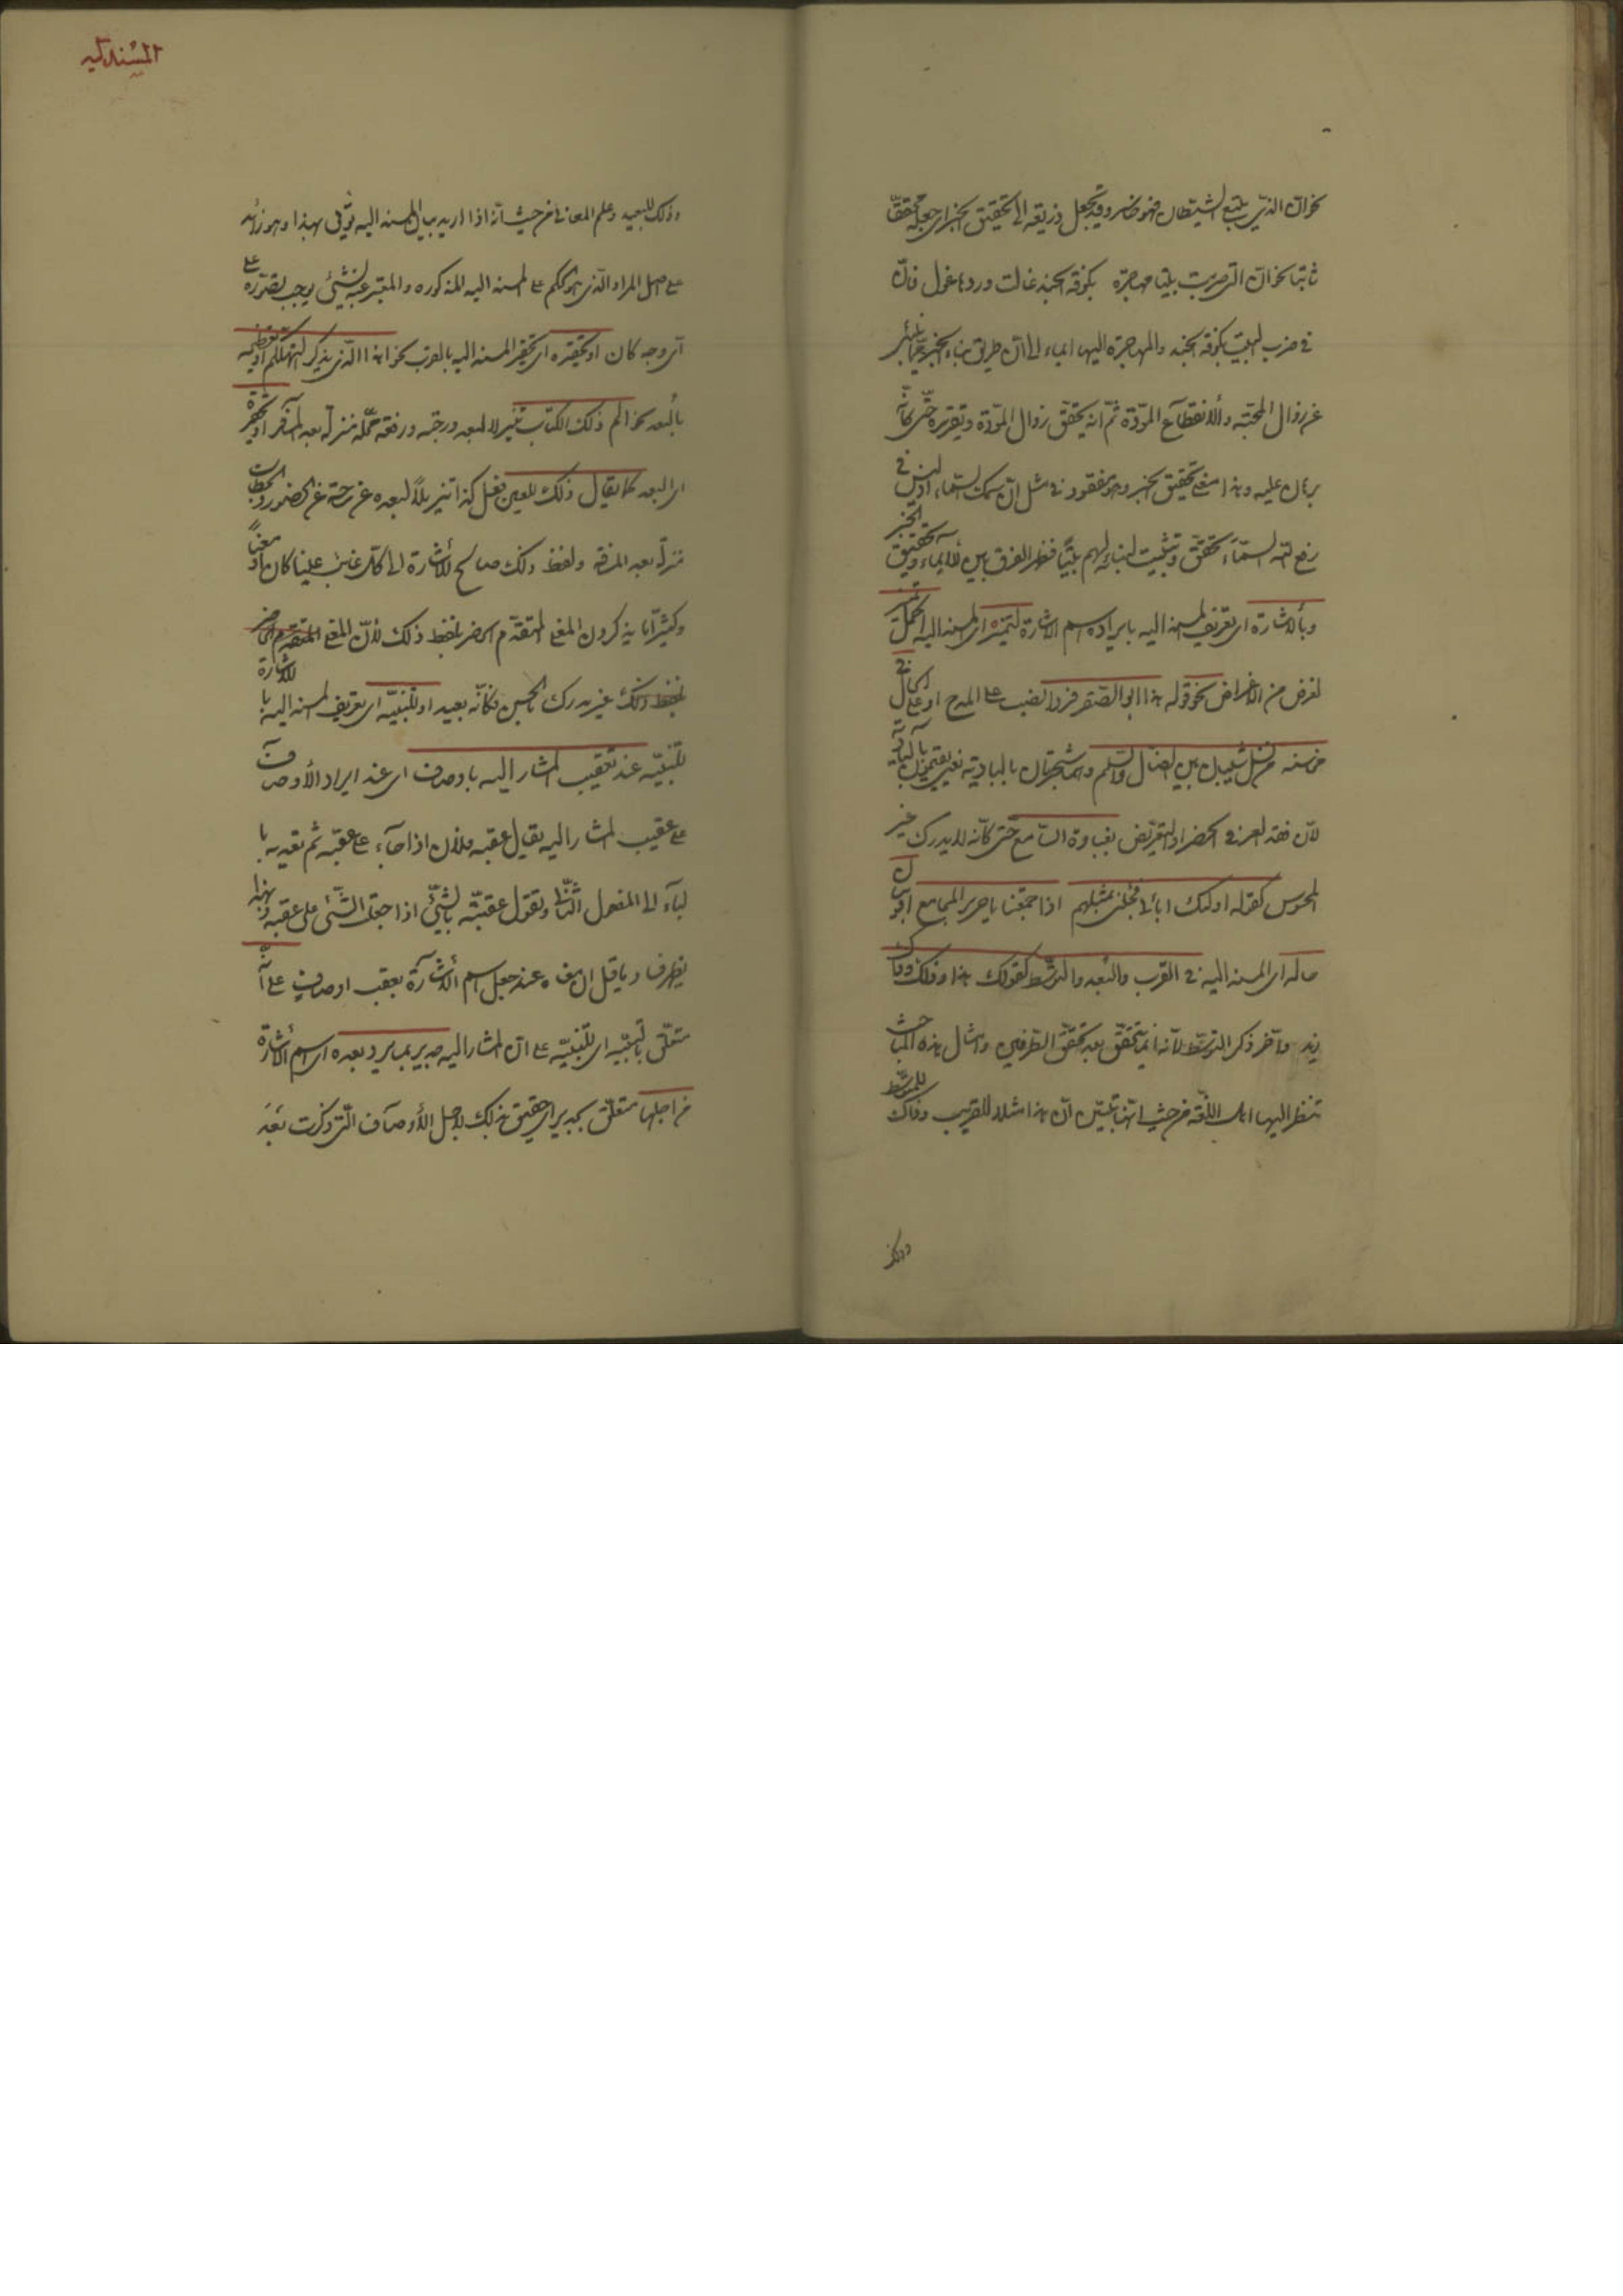 نحو انّ الذي يتبع الشيطان فهو خاسر وقد يجعل ذريعة الى تحقيق الخبر اى جعله محققّا
ثابتا نحو انّ التى ضربت بيتا مهاجرّة بكوفة الجند غالت ودها غول فانّ
فى ضرب البيت بكوفة الجند والمهاجرة اليها ايماء الى انّ طريق بناء الخبر ممّا ينبئ
عن زوال المحبّة والانقطاع المودّة ثمّ انه يحقّق زوال المودّة ويقرره حتّى كانّه
برهان عليه وهذا معنى تحقيق الخبر وهو مفقود فى مثل انّ الذى سمك السّماء اذ ليس فى
رفع الله السّماء تحقّق وتثبيت لبنائه لهم بيتًا فظهر الفرق بين الايماء وتحقيق الخبر
وبالاشارة اى تعريف المسند اليه بايراده اسم الاشارة لتميّزه اى المسند اليه اكمل تميز
لغرض من الاغراض نحو قوله هذا ابو الصّقر فردا نصب على المدح او على الحال فى
محاسنه من نسل شيبان بين الضال والسّلم وهما شجرتان بالبادية يعنى يقيمون بالبادية
لانّ فقد العز فى الحضر او التعريض بغباوة السّامع حتى كانّه لا يدرك غير
المحسوس كقوله اولئك ابائى فجئنى بمثلهم اذا جمعتنا يا جرير المجامع او بيان
حاله اى المسند اليه فى القرب والبُعد والتوسّط كقولك هذا او ذلك وذاك
زيد واخّر ذكر التوسّط لانّه انّما يتحقّق بعد تحقّق الطّرفين وامثال هذه المباحث
تنظر اليها اهل اللغّة من حيث انّها تبيّن انّ هذا مثلا للقريب وذاك للمتوسّط
وذلك
المسند اليه
وذلك للبعيد وعلم المعانى من حيث انّه اذا اريد بيان المسند اليه يؤتى بهذا وهو زائد
على اصل المراد الّذى هو الحكم على المسند اليه المذكوره والمعتبر عنه بشيئ يوجب تصوّره على
اىّ وجه كان او تحقيره اى تحقير المسند اليه بالقرب نحو اهذا الّذى يذكر الهتكم او تعظيمه
بالبُعد نحو الم ذلك الكتاب تنزيلا لبعد درجته ورفعة محلّه منزلة بعد المسافة او تحقيره
اى البعد كما يقال ذلك اللعين فعل كذا تنزيلاً لبعده عن ساحة عزّ الحضور والخطاب
منزلة بعد المسافة ولفظ ذلك صالح للأشارة الى كلّ غائب عينا كان او معنًا
وكثيرًا ما يذكرون المعنى المتقدّم الحاضر بلفظ ذلك لأنّ المعنى المتقدم الحاضر
بلفظ ذلك غير مدرك بالحسّ فكانّه بعيد او للتنبيّه اى تعريف المسند اليه بالاشارة
للتنبيّه عند تعقيب المشار اليه باوصاف اى عند ايراد الأوصاف
على عقيب المشار اليه يقال عقبه فلان اذا جاء على عقبه ثم تعديه با
لباء الى المفعول الثّانى وتقول عقبته بالشّيئ اذا جعلت الشّيئ على عقبه وبهذا
يظهر فساد ما قيل ان معناه عند جعل اسم الأشارة بعقب اوصاف على انّه
متعلّق بالتّنبيّه اى للتّنبيّه على انّ المشار اليه جدير بما يرد بعده اى اسم الاشارة
من اجلها متعلّق بجدير اى حقيق بذلك لاجل الأوصاف الّتى ذكرت بعد